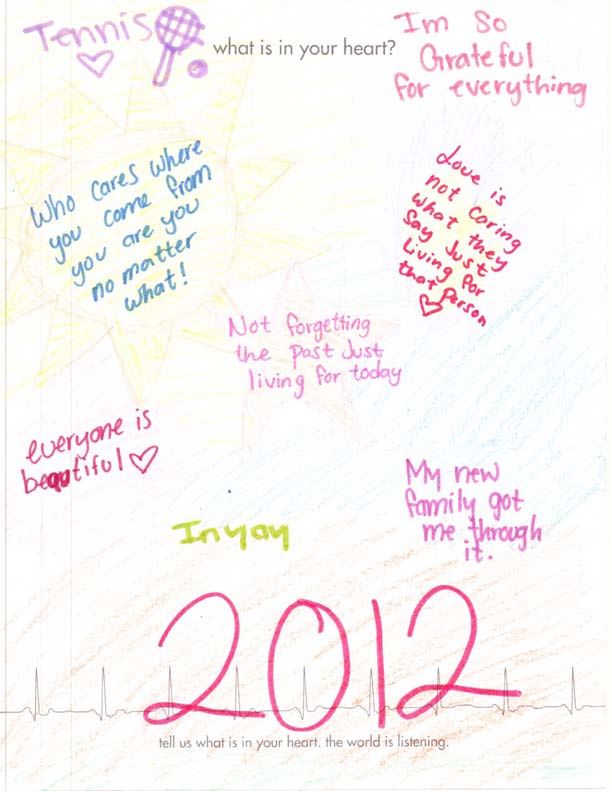 Tennis
what is in your heart?
Im So
Grateful
for everything
Who cares where
you come from
you are you
no matter
what!
Love is
not caring
what they
say Just
living for
that person
Not forgetting
the past Just
living for today
everyone is
beautiful
My new
family got
me through
it.
Inyay
2012
tell us what is in your heart. the world is listening.